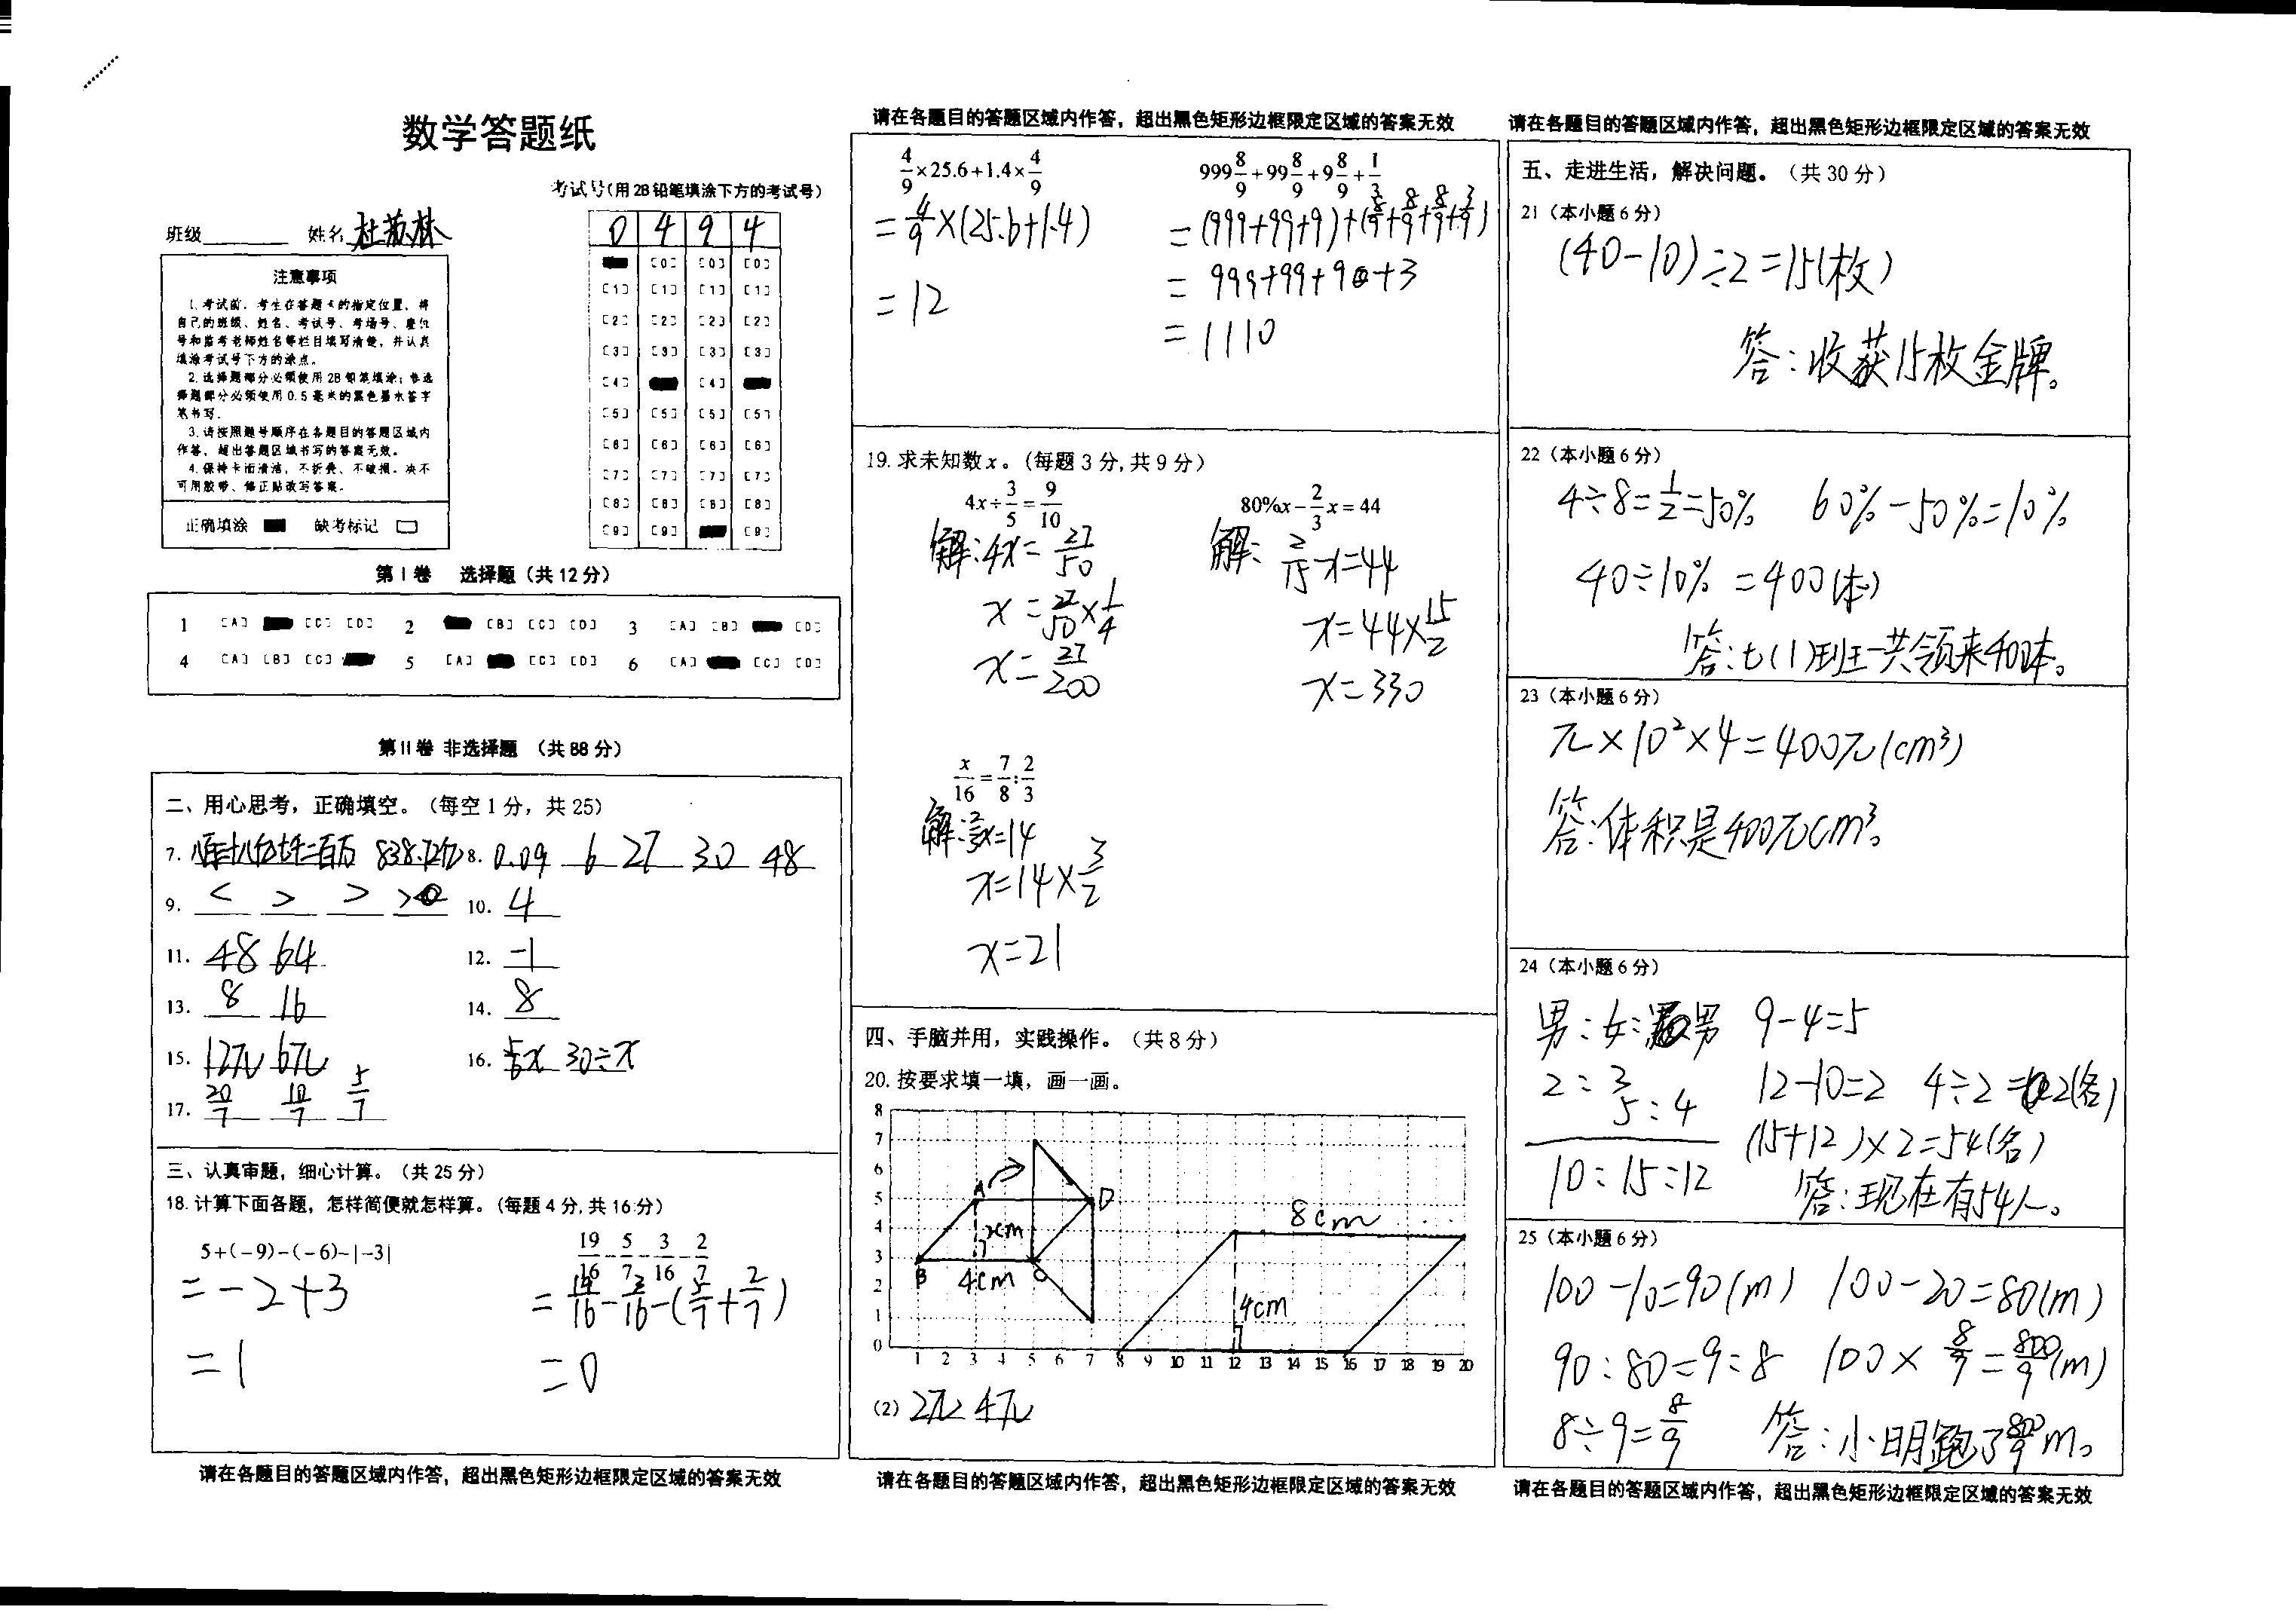 数学答题纸
考试号(用2B铅笔填涂下方的考试号)
班级 姓名 杜苏林
0 4 9 4
注意事项
1.考试前，考生在答题卡的指定位置，将
自己的班级、姓名、考试号、考场号、座位
号和监考老师姓名等栏目填写清楚，并认真
填涂考试号下方的涂点。
2.选择题部分必须使用2B铅笔填涂；非选
择题部分必须使用0.5毫米的黑色墨水签字
笔书写.
3.请按照题号顺序在各题目的答题区域内
作答，超出答题区域书写的答案无效。
4.保持卡面清洁，不折叠、不破损。决不
可用胶带、修正贴改写答案.
正确填涂 缺考标记
[0] [0] [0]
[1] [1] [1] [1]
[2] [2] [2] [2]
[3] [3] [3] [3]
[4] [4]
[5] [5] [5] [5]
[6] [6] [6] [6]
[7] [7] [7] [7]
[8] [8] [8] [8]
[9] [9] [9]
第I卷 选择题（共12分）
1 [A] [C] [D] 2 [B] [C] [D] 3 [A] [B] [D]
4 [A] [B] [C] 5 [A] [C] [D] 6 [A] [C] [D]
第II卷 非选择题 （共88分）
二、用心思考，正确填空。（每空1分，共25）
7. 838.72亿 8. 0.09 6 27 30 48
9. < > > > 10. 4
11. 48 64 12. -1
13. 8 16 14. 8
15. 12π 6π 16. 5/6x 30÷x
17. 20/7 10/7 5/7
三、认真审题，细心计算。（共25分）
18.计算下面各题，怎样简便就怎样算。（每题4分,共16分）
5+(-9)-(-6)-|-3| 19/16-5/7-3/16-2/7
=-2+3 =19/16-3/16-(5/7+2/7)
=1 =0
请在各题目的答题区域内作答，超出黑色矩形边框限定区域的答案无效
请在各题目的答题区域内作答，超出黑色矩形边框限定区域的答案无效
4/9×25.6+1.4×4/9 999 8/9+99 8/9+9 8/9+1/3
=4/9×(25.6+1.4) =(999+99+9)+(8/9+8/9+8/9+3/9)
=12 =999+99+9+3
=1110
19.求未知数x。（每题3分,共9分）
4x÷3/5=9/10 80%x-2/3x=44
解:4x=27/50 解:2/15x=44
x=27/50×1/4 x=44×15/2
x=27/200 x=330
x/16=7/8:2/3
解:2/3x=14
x=14×3/2
x=21
四、手脑并用，实践操作。（共8分）
20.按要求填一填，画一画。
8
7
6
5 A D
4 2cm 8cm
3
2 B 4cm C
1 4cm
0
1 2 3 4 5 6 7 8 9 10 11 12 13 14 15 16 17 18 19 20
(2) 2π 4π
请在各题目的答题区域内作答，超出黑色矩形边框限定区域的答案无效
请在各题目的答题区域内作答，超出黑色矩形边框限定区域的答案无效
五、走进生活，解决问题。（共30分）
21（本小题6分）
(40-10)÷2=15(枚)
答:收获15枚金牌。
22（本小题6分）
4÷8=1/2=50% 60%-50%=10%
40÷10%=400(本)
答:七(1)班一共领来400本。
23（本小题6分）
π×10²×4=400π(cm³)
答:体积是400πcm³。
24（本小题6分）
男:女:男 9-4=5
2:3 12-10=2 4÷2=2(名)
5:4 (15+12)×2=54(名)
10:15:12 答:现在有54人。
25（本小题6分）
100-10=90(m) 100-20=80(m)
90:80=9:8 100×8/9=800/9(m)
8÷9=8/9 答:小明跑了800/9m。
请在各题目的答题区域内作答，超出黑色矩形边框限定区域的答案无效